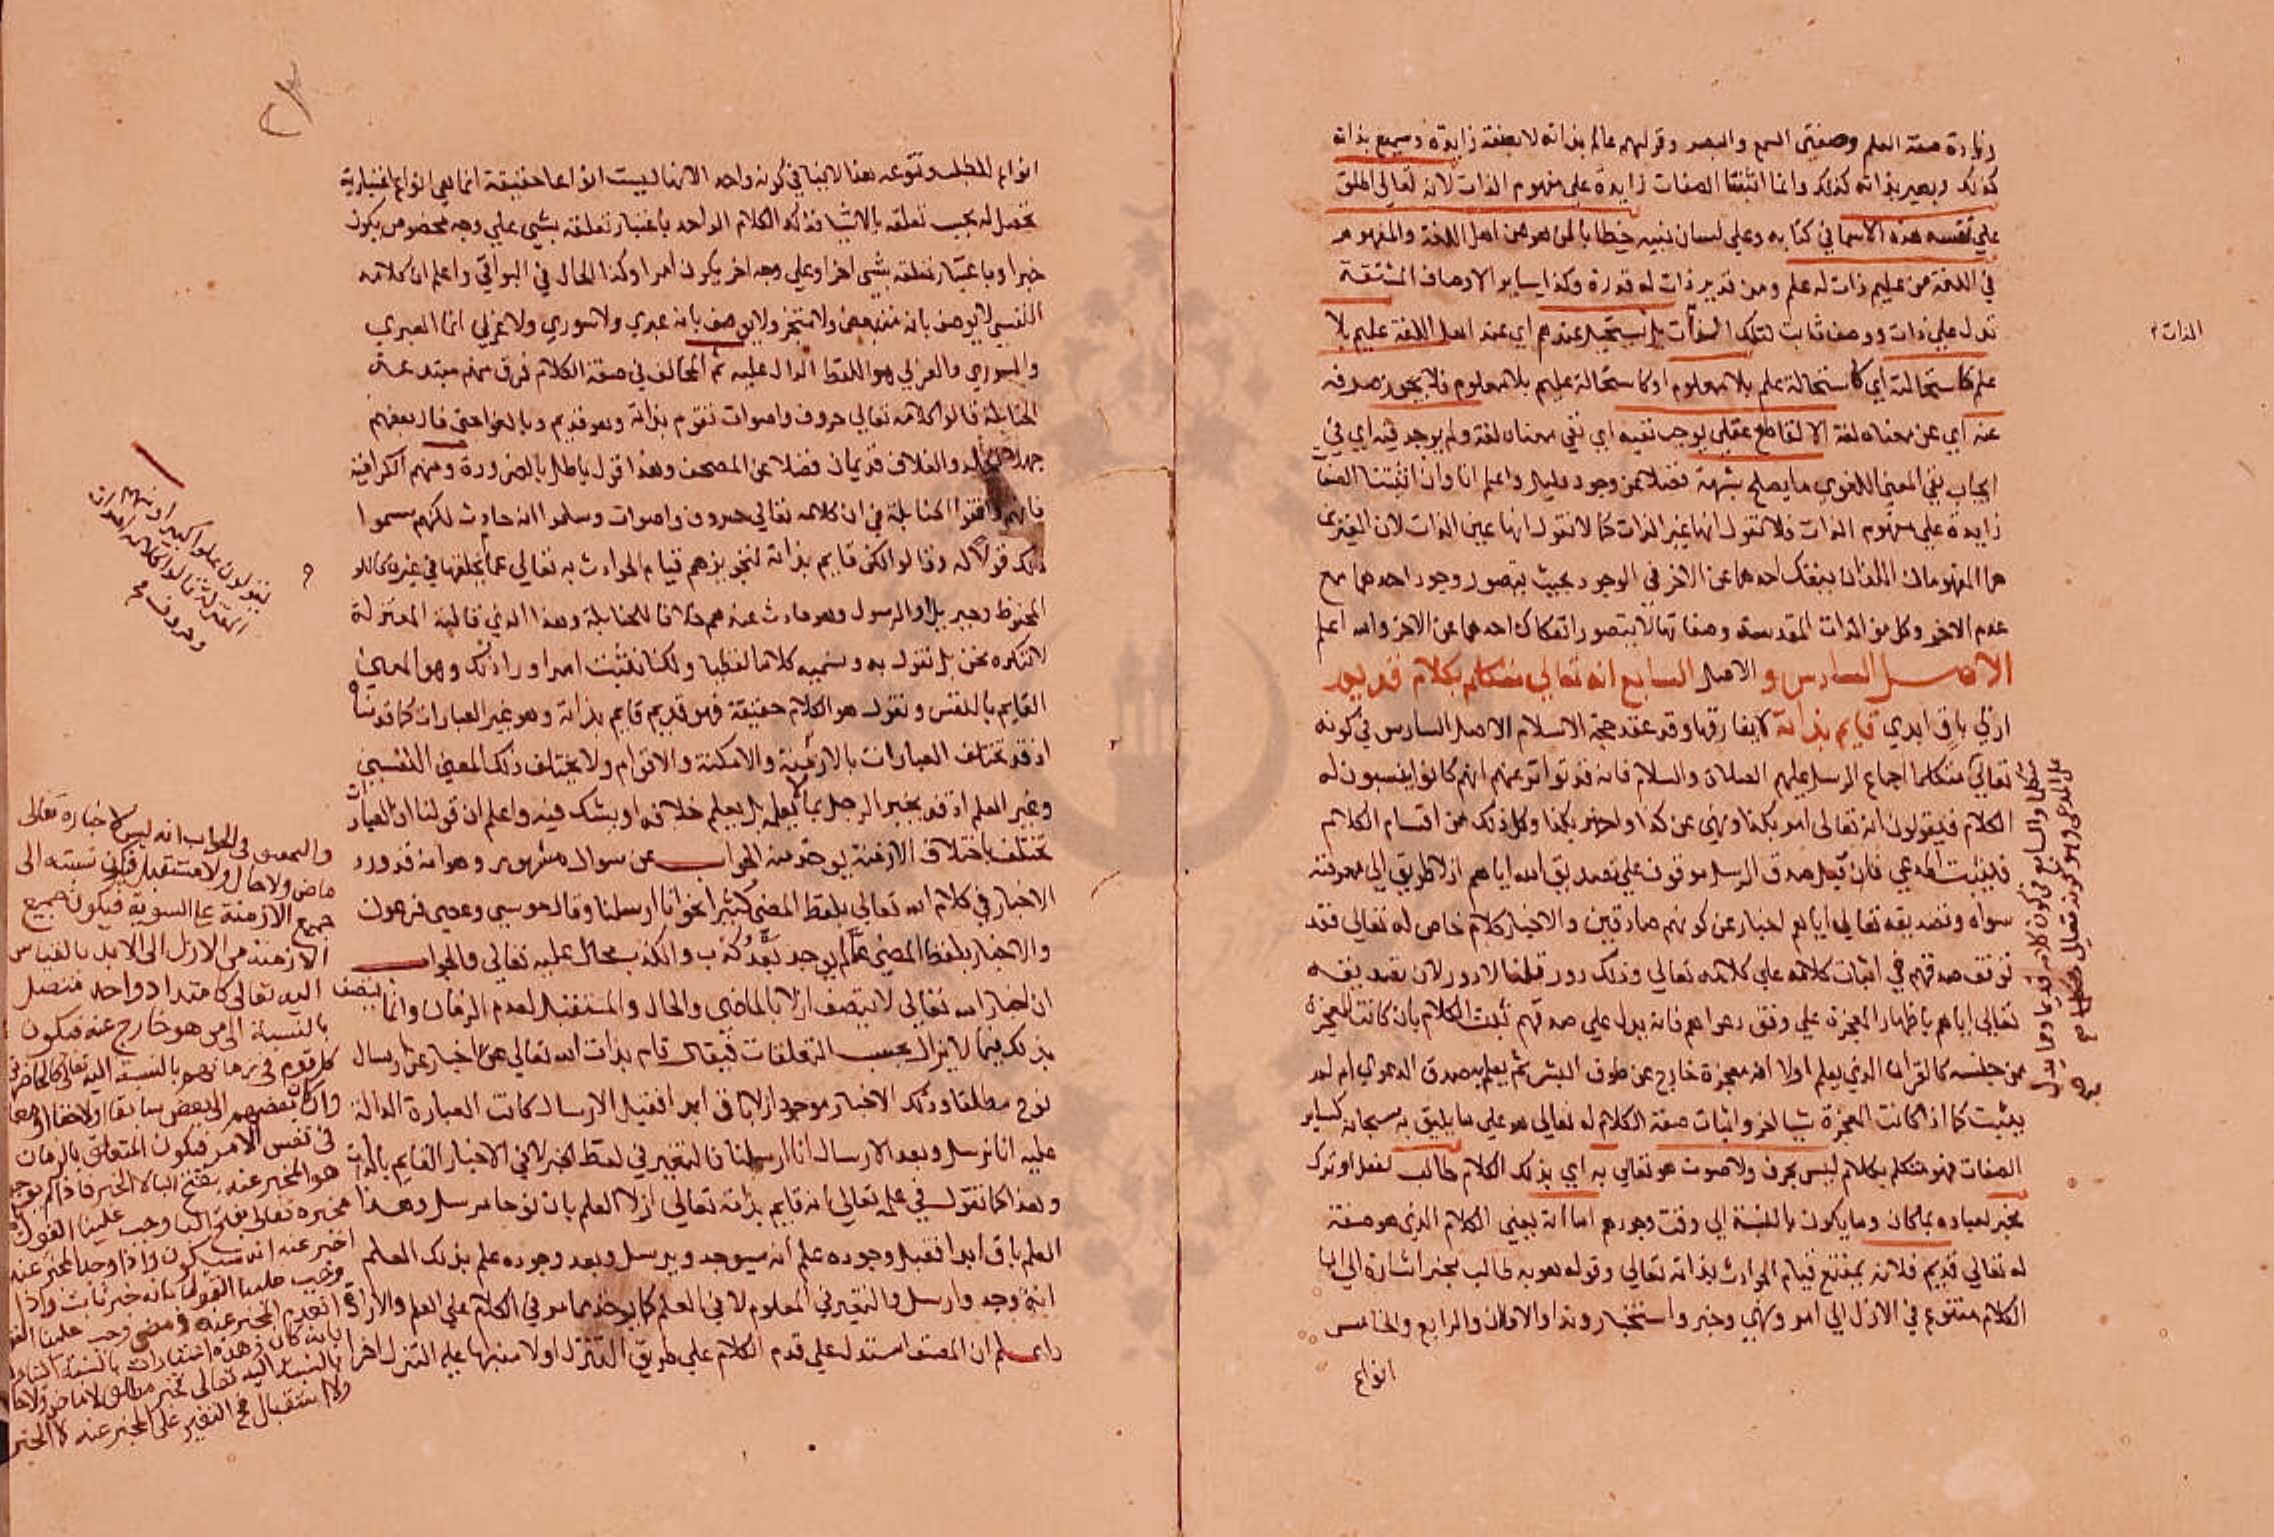 زيادة صفة العلم وصفتي السمع والبصر وقولهم عالم بذاته لا بصفة زايدة وسميع بذاته
كذلك وبصير بذاته كذلك وانما اثبتنا الصفات زايدة علي مفهوم الذات لانه تعالي اطلق
علي نفسه هذه الاسما في كتابه وعلي لسان نبيه خطابا لمن هو من اهل اللغة والمفهوم
في اللغة من عليم ذات له علم ومن قدير ذات له قدرة وكذا ساير الاوصاف المشتقة
تدل علي ذات ووصف ثابت لتلك الذات بل يستحيل عندهم اي عند اهل اللغة عليم بلا
علم كاستحالته اي كاستحالة علم بلا معلوم او كاستحالة عليم بلا معلوم فلا يجوز صرفه
عنه اي عن معناه لغة الا لقاطع عقلي يوجب نفيه اي نفي معناه لغة ولم يوجد فيه اي في
ايجاب نفي المعني اللغوي ما يصلح شبهة فضلا عن وجود دليل واعلم انا وان اثبتنا الصفات
زايدة علي مفهوم الذات فلا نقول انها غير الذات كما لا نقول انها عين الذات لان الغيرين
هما المفهومان اللذان ينفك احدهما عن الاخر في الوجود بحيث يتصور وجود احدهما مع
عدم الاخر وكل من الذات المقدسة وصفاتها لا يتصور انفكاك احدهما عن الاخر والله اعلم
الاصل السادس والاصل السابع انه تعالي متكلم بكلام قديم
ازلي باق ابدي قايم بذاته لا يفارقها وقد عقد حجة الاسلام الاصل السادس في كونه
تعالي متكلما اجماع الرسل عليهم الصلاة والسلام فانه قد تواتر عنهم انهم كانوا ينسبون له
الكلام فيقولون انه تعالي امر بكذا ونهي عن كذا واخبر بكذا وكل ذلك من اقسام الكلام
فثبت المدعي فان قيل صدق الرسل موقوف علي تصديق الله اياهم اذ لا طريق الي معرفته
سواه وتصديقه تعالي اياهم اخبار عن كونهم صادقين والاخبار كلام خاص له تعالي فقد
توقف صدقهم في اثبات كلامه علي كلامه تعالي وذلك دور قلنا لا دور لان تصديقه
تعالي اياهم باظهار المعجزة علي وفق دعواهم فانه يدل علي صدقهم ثبت الكلام بان كانت المعجزة
من جنسه كالقران الذي يعلم اولا انه معجزة خارج عن طوق البشر ثم يعلم به صدق الدعوي ام لم
يثبت كما اذا كانت المعجزة شيا اخر واثبات صفة الكلام له تعالي هو علي ما يليق به سبحانه كساير
الصفات فهو متكلم بكلام ليس بحرف ولا صوت هو تعالي به اي بذلك الكلام طالب لفعل او ترك
مخبر لعباده بما كان وما يكون بالنسبة الي وقت وجودهم اما انه يعني الكلام الذي هو صفة
له تعالي قديم فلانه يمتنع قيام الحوادث بذاته تعالي وقوله هو به طالب مخبر اشارة الي ان
الكلام متنوع في الازل الي امر ونهي وخبر واستخبار وندا والاولان والرابع والخامس
انواع
الذات
انواع الطلب وتنوعه هذا لا ينافي كونه واحد الانها ليست انواعا حقيقة انما هي انواع اعتبارية
تحصل له بحسب تعلقه بالاشيا فذلك الكلام الواحد باعتبار تعلقه بشي علي وجه مخصوص يكون
خبرا وباعتبار تعلقه بشي اخر او علي وجه اخر يكون امرا وكذا الحال في البواقي واعلم ان كلامه
النفسي لا يوصف بانه متبعض ولا متجز ولا يوصف بانه عبري ولا سوري ولا عربي انما العبري
والسوري والعربي هو اللفظ الدال عليه ثم المخالف في صفة الكلام فرق منهم مبتدعة
الحنابلة قالوا كلامه تعالي حروف واصوات تقوم بذاته وهو قديم وبالغوا حتي قال بعضهم
جهلا الجلد والغلاف قديمان فضلا عن المصحف وهذا قول باطل بالضرورة ومنهم الكرامية
فانهم وافقوا الحنابلة في ان كلامه تعالي حروف واصوات وسلموا انه حادث لكنهم سموا
ذلك قولا له وقالوا لكن قايم بذاته لتجويزهم قيام الحوادث به تعالي عما يخلقها في غيره كاللوح
المحفوظ وجبريل او الرسول وهو حادث عندهم خلافا للحنابلة وهذا الذي قالته المعتزلة
لا ننكره نحن بل نقول به ونسميه كلاما لفظيا ولكنا نثبت امرا ورا ذلك وهو المعني
القايم بالنفس ونقول هو الكلام حقيقة فهو قديم قايم بذاته وهو غير العبارات كما قدمناه
اذ قد تختلف العبارات بالازمنة والامكنة والاقوام ولا يختلف ذلك المعني النفسي
وغير العلم اذ قد يخبر الرجل بما لا يعلمه بل يعلم خلافه او يشك فيه واعلم ان قولنا ان العبارات
تختلف باختلاف الازمنة يوخذ منه الجواب عن سوال مشهور وهو انه قد ورد
الاخبار في كلام الله تعالي بلفظ المضي كثيرا نحو انا ارسلنا وقال موسي وعصي فرعون
والاخبار بلفظ المضي عما لم يوجد بعد كذب والكذب محال عليه تعالي والجواب
ان اخبار الله تعالي لا يتصف ازلا بالماضي والحال والمستقبل لعدم الزمان وانما يتصف
بذلك فيما لا يزال بحسب التعلقات فيقال قام بذات الله تعالي اخبار عن ارسال
نوح مطلقا وذلك الاخبار موجود ازلا باق ابدا فقبل الارسال كانت العبارة الدالة
عليه انا نرسل وبعد الارسال انا ارسلنا فالتغير في لفظ الخبر لا في الاخبار القايم بالذات
وهذا كما نقول في علمه تعالي انه قايم بذاته تعالي ازلا العلم بان نوحا مرسل وهذا
العلم باق ابدا فقبل وجوده علم انه سيوجد ويرسل وبعد وجوده علم بذلك العلم
انه وجد وارسل والتغير في المعلوم لا في العلم كما يوخذ مما مر في الكلام علي العلم والارادة
واعلم ان المصنف استدل علي قدم الكلام علي طريق التنزل اولا منبها علي التنزل اخرا
المعتزلة قالوا كلامه اصوات
وحروف
والتحقيق في الجواب انه ليس لاخباره تعالي
ماض ولا حال ولا مستقبل فيكون نسبته الي
جميع الازمنة علي السوية فيكون جميع
الازمنة من الازل الي الابد بالقياس
اليه تعالي كامتداد واحد متصل
بالنسبة الي من هو خارج عنه فيكون